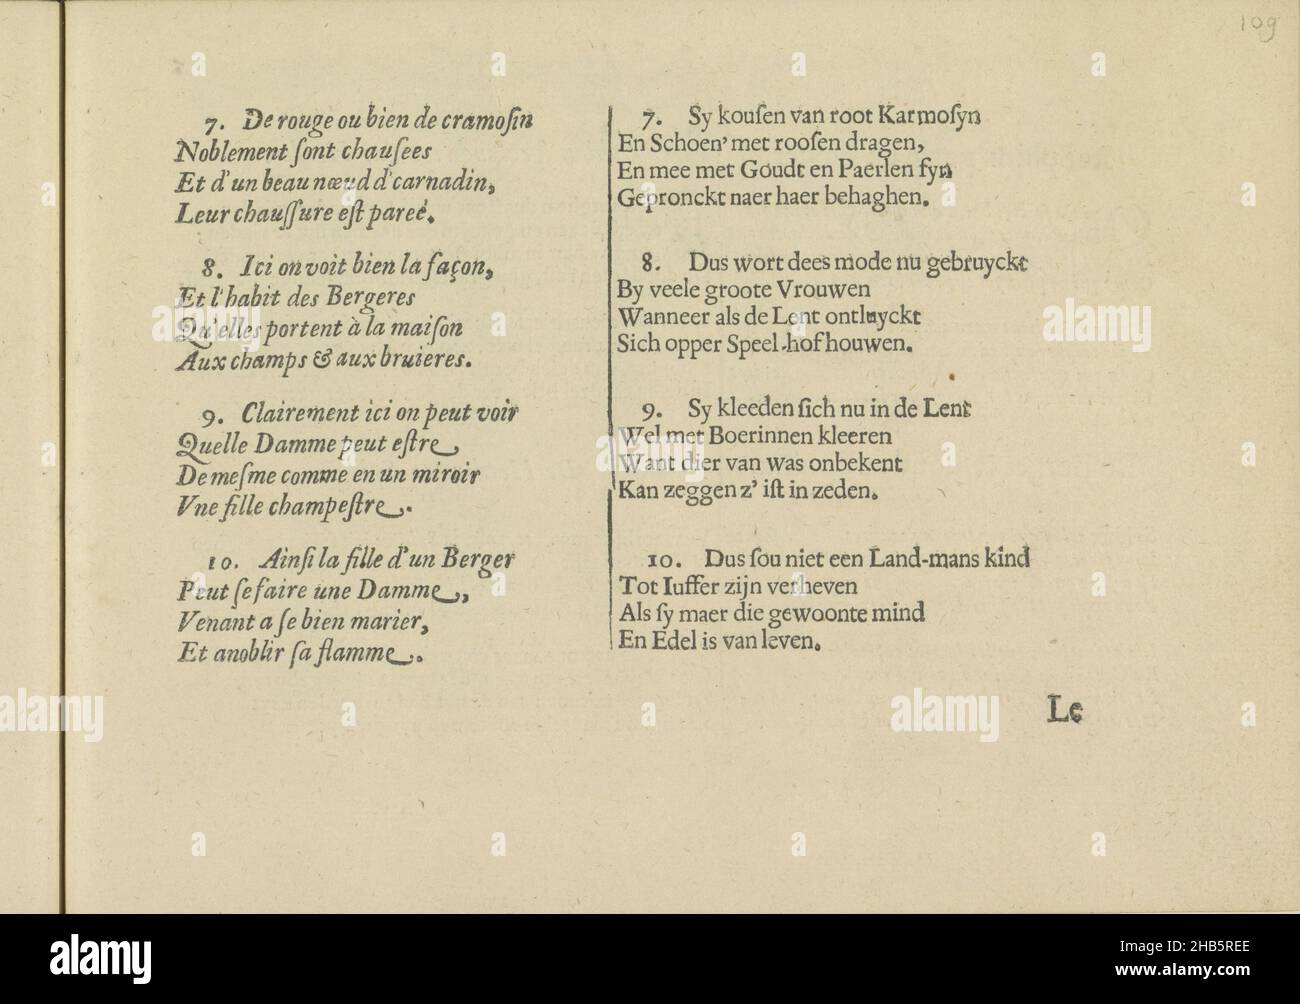 109
7. De rouge ou bien de cramoſin
Noblement ſont chauſees
Et d'un beau nœud d'carnadin,
Leur chauſſure eſt pareé.
8. Ici on voit bien la façon,
Et l'habit des Bergeres
Qu'elles portent à la maiſon
Aux champs & aux bruieres.
9. Clairement ici on peut voir
Quelle Damme peut eſtre
De meſme comme en un miroir
Vne fille champeſtre.
10. Ainſi la fille d'un Berger
Peut ſe faire une Damme,
Venant a ſe bien marier,
Et anoblir ſa flamme.
7. Sy kouſen van root Karmoſyn
En Schoen' met rooſen dragen,
En mee met Goudt en Paerlen fyn
Gepronckt naer haer behaghen.
8. Dus wort dees mode nu gebruyckt
By veele groote Vrouwen
Wanneer als de Lent ontluyckt
Sich opper Speel-hof houwen.
9. Sy kleeden ſich nu in de Lent
Wel met Boerinnen kleeren
Want dier van was onbekent
Kan zeggen z' iſt in zeden.
10. Dus ſou niet een Land-mans kind
Tot Iuffer zijn verheven
Als ſy maer die gewoonte mind
En Edel is van leven.
Le
alamy
Image ID: 2HB5REE
www.alamy.com